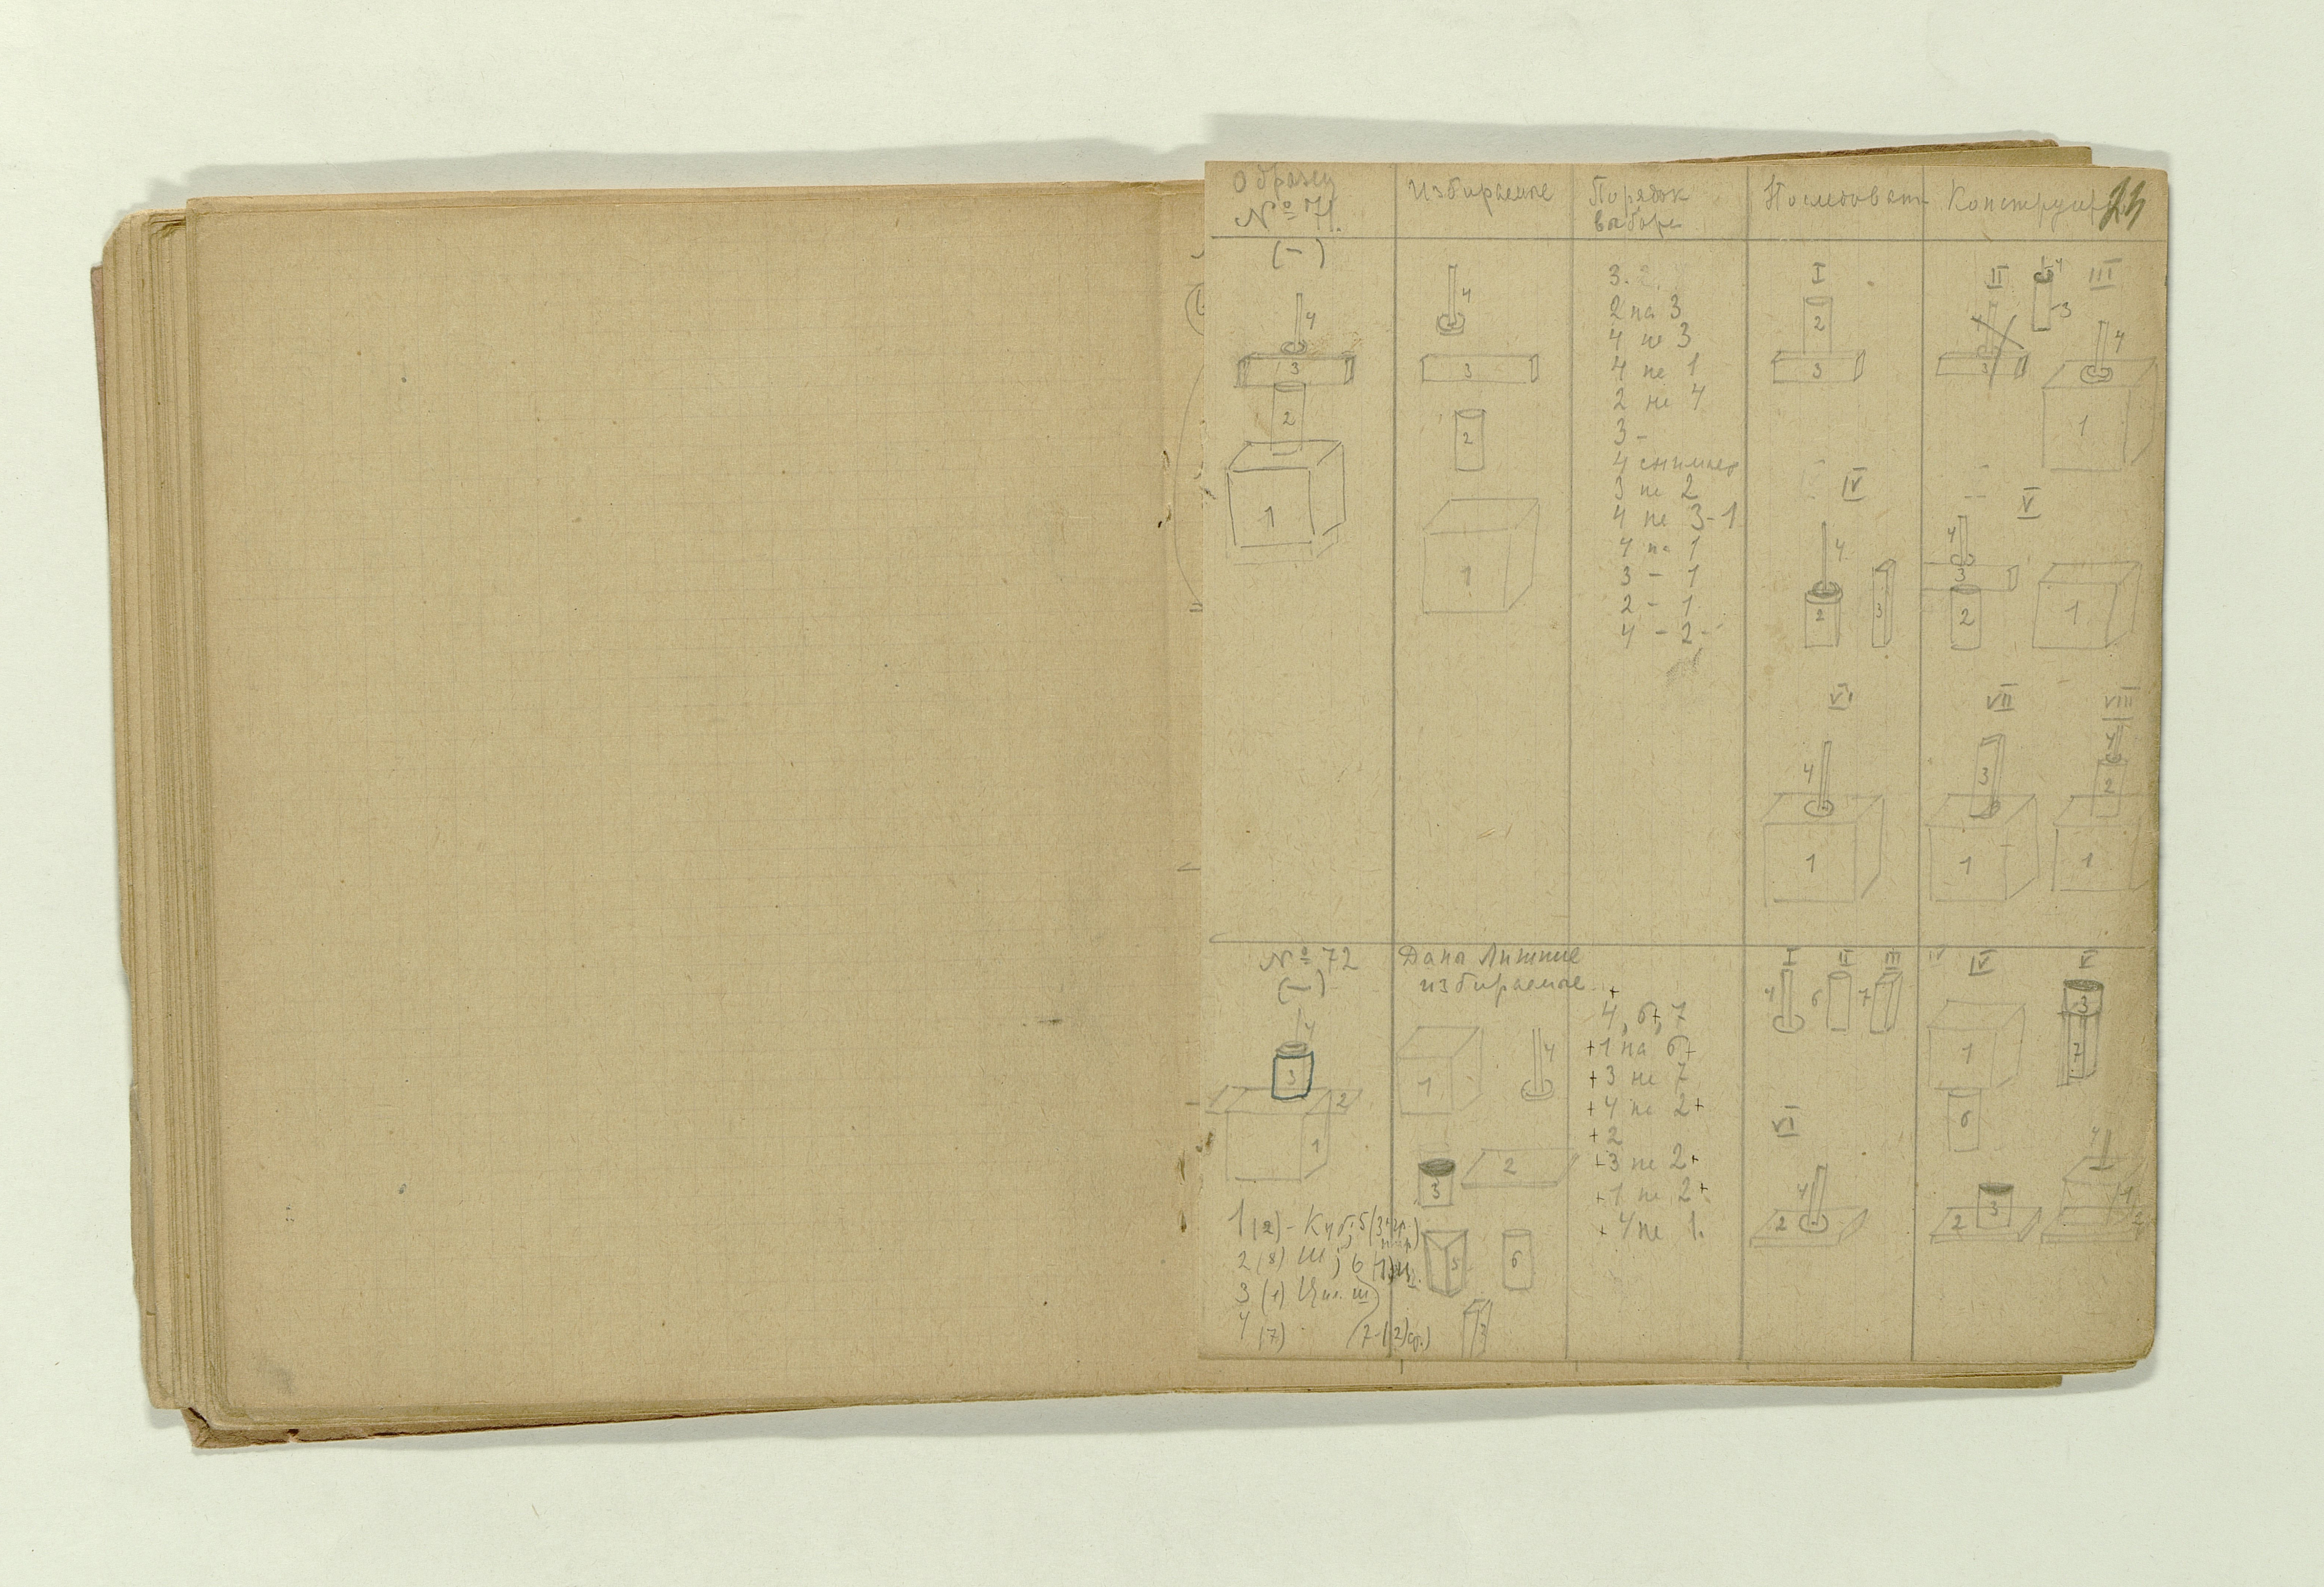 Образец
№ 71.
(–)
4
3
2
1
Избираемое
4
3
2
1
Порядок
выбора
3.
2 на 3
4 на 3
4 на 1
2 на 4
3 –
4 снимает
3 на 2
4 на 3-1
4 на 1
3 – 1
2 – 1
4 – 2 –
Последоват. Конструир.
I
2
3
II
4
3
4
3
III
4
1
IV
4
2
3
V
4
3
2
1
VI
4
1
VII
3
1
VIII
4
2
1
№ 72
(–)
4
3
2
1
1 (2) – Куб; 5 (3
2 (8)
3 (1)
4 (7)
Даны Лишние
избираемые
1
4
3
2
5
6
7
4, 6, 7
+1 на 6+
+3 на 7
+4 на 2+
+2
+3 на 2+
+1 на 2+
+4 на 1.
I
4
II
6
III
7
IV
1
6
V
3
7
VI
4
2
2
3
4
1
2